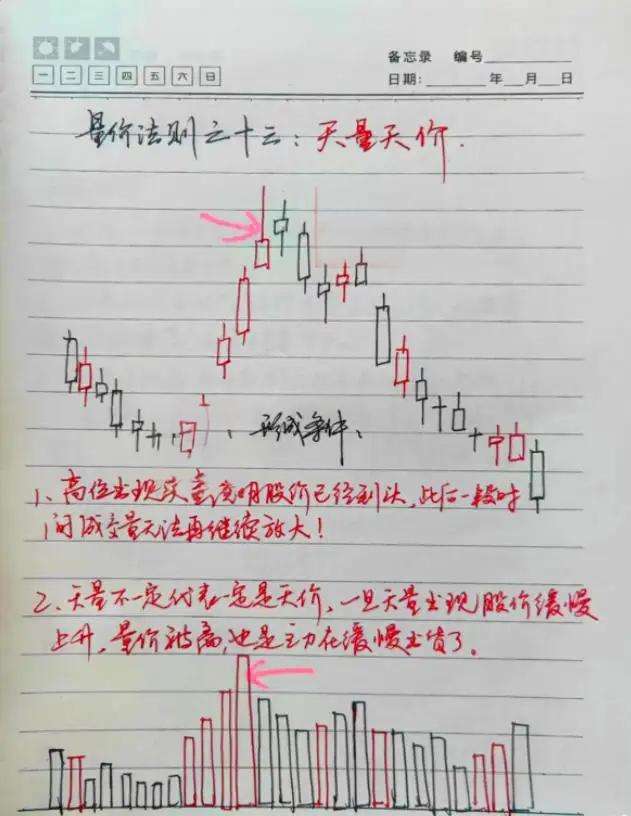 备忘录 编号
一 二 三 四 五 六 日
日期: 年 月 日
量价法则之十三:天量天价.
、形成条件、
1、高位出现天量说明股价已经到头,此后一段时
间成交量无法再继续放大!
2、天量不一定代表一定是天价,一旦天量出现股价缓慢
上升,量价 ,也是主力在缓慢出货了。